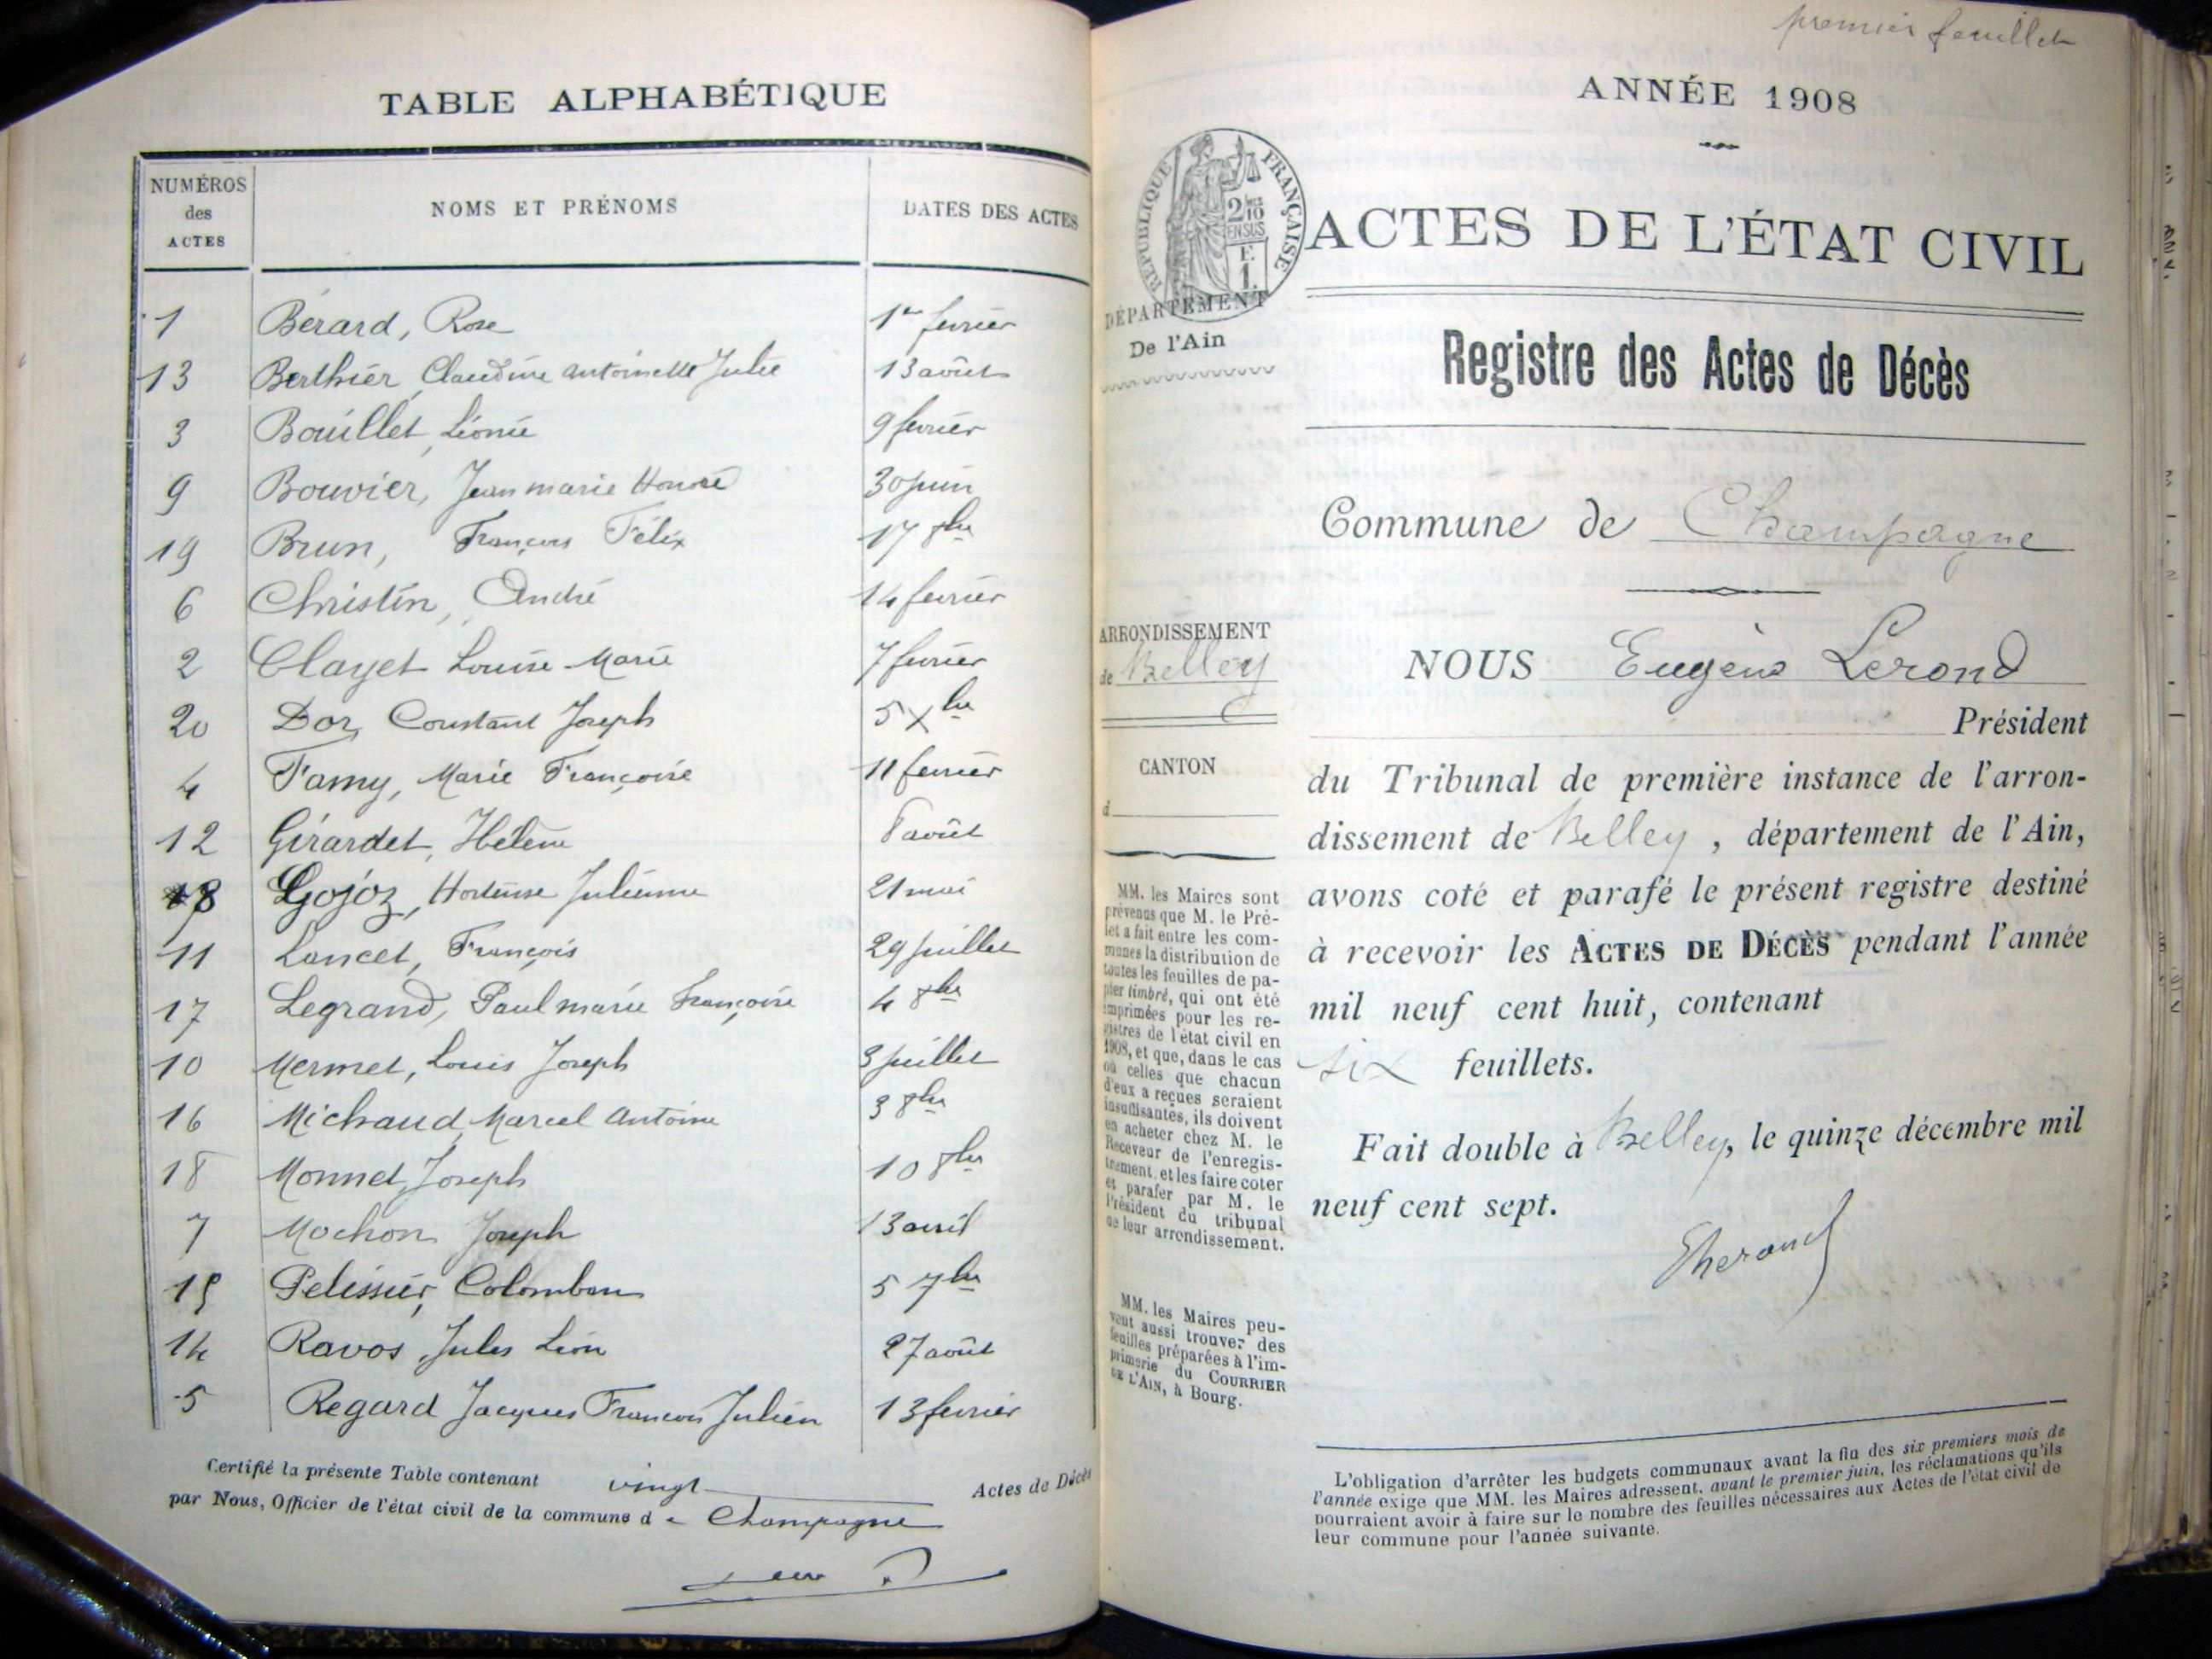 TABLE ALPHABÉTIQUE
NUMÉROS
des
ACTES
NOMS ET PRÉNOMS
DATES DES ACTES
1 Bérard, Rose 1er fevrier
13 Berthier, Claudine Antoinette Julie 13 août
3 Bouillet, Léonie 9 fevrier
9 Bouvier, Jean marie Honoré 30 juin
19 Brun, François Félix 17 8bre
6 Christin, André 14 fevrier
2 Clayet Louise Marie 7 fevrier
20 Dor, Constant Joseph 5 Xbre
4 Famy, Marie Françoise 11 fevrier
12 Girardet, Hélène 8 août
8 Gojoz, Hortense Julienne 21 mai
11 Lancet, François 29 juillet
17 Legrand, Paul marie Françoise 4 8bre
10 Mermet, Louis Joseph 3 juillet
16 Michaud, Marcel Antoine 3 8bre
18 Monnet, Joseph 10 8bre
7 Mochon Joseph 13 avril
15 Pelissier, Colomban 5 7bre
14 Ravos, Jules Léon 27 août
5 Regard Jacques François Julien 13 fevrier
Certifié la présente Table contenant vingt Actes de Décès
par Nous, Officier de l'état civil de la commune de Champagne
premier feuillet
ANNÉE 1908
RÉPUBLIQUE FRANÇAISE
2/10
EN SUS
E
1
ACTES DE L'ÉTAT CIVIL
DÉPARTEMENT
De l'Ain
Registre des Actes de Décès
Commune de Champagne
ARRONDISSEMENT
de Belley
CANTON
d
MM. les Maires sont
prévenus que M. le Pré-
fet a fait entre les com-
munes la distribution de
toutes les feuilles de pa-
pier timbré, qui ont été
imprimées pour les re-
gistres de l'état civil en
1908, et que, dans le cas
où celles que chacun
d'eux a reçues seraient
insuffisantes, ils doivent
en acheter chez M. le
Receveur de l'enregis-
trement, et les faire coter
et parafer par M. le
Président du tribunal
de leur arrondissement.
MM. les Maires peu-
vent aussi trouver des
feuilles préparées à l'im-
primerie du COURRIER
DE L'AIN, à Bourg.
NOUS Eugène Lerond
Président
du Tribunal de première instance de l'arron-
dissement de Belley, département de l'Ain,
avons coté et parafé le présent registre destiné
à recevoir les ACTES DE DÉCÈS pendant l'année
mil neuf cent huit, contenant
six feuillets.
Fait double à Belley, le quinze décembre mil
neuf cent sept.
L'obligation d'arrêter les budgets communaux avant la fin des six premiers mois de
l'année exige que MM. les Maires adressent, avant le premier juin, les réclamations qu'ils
pourraient avoir à faire sur le nombre des feuilles nécessaires aux Actes de l'état civil de
leur commune pour l'année suivante.